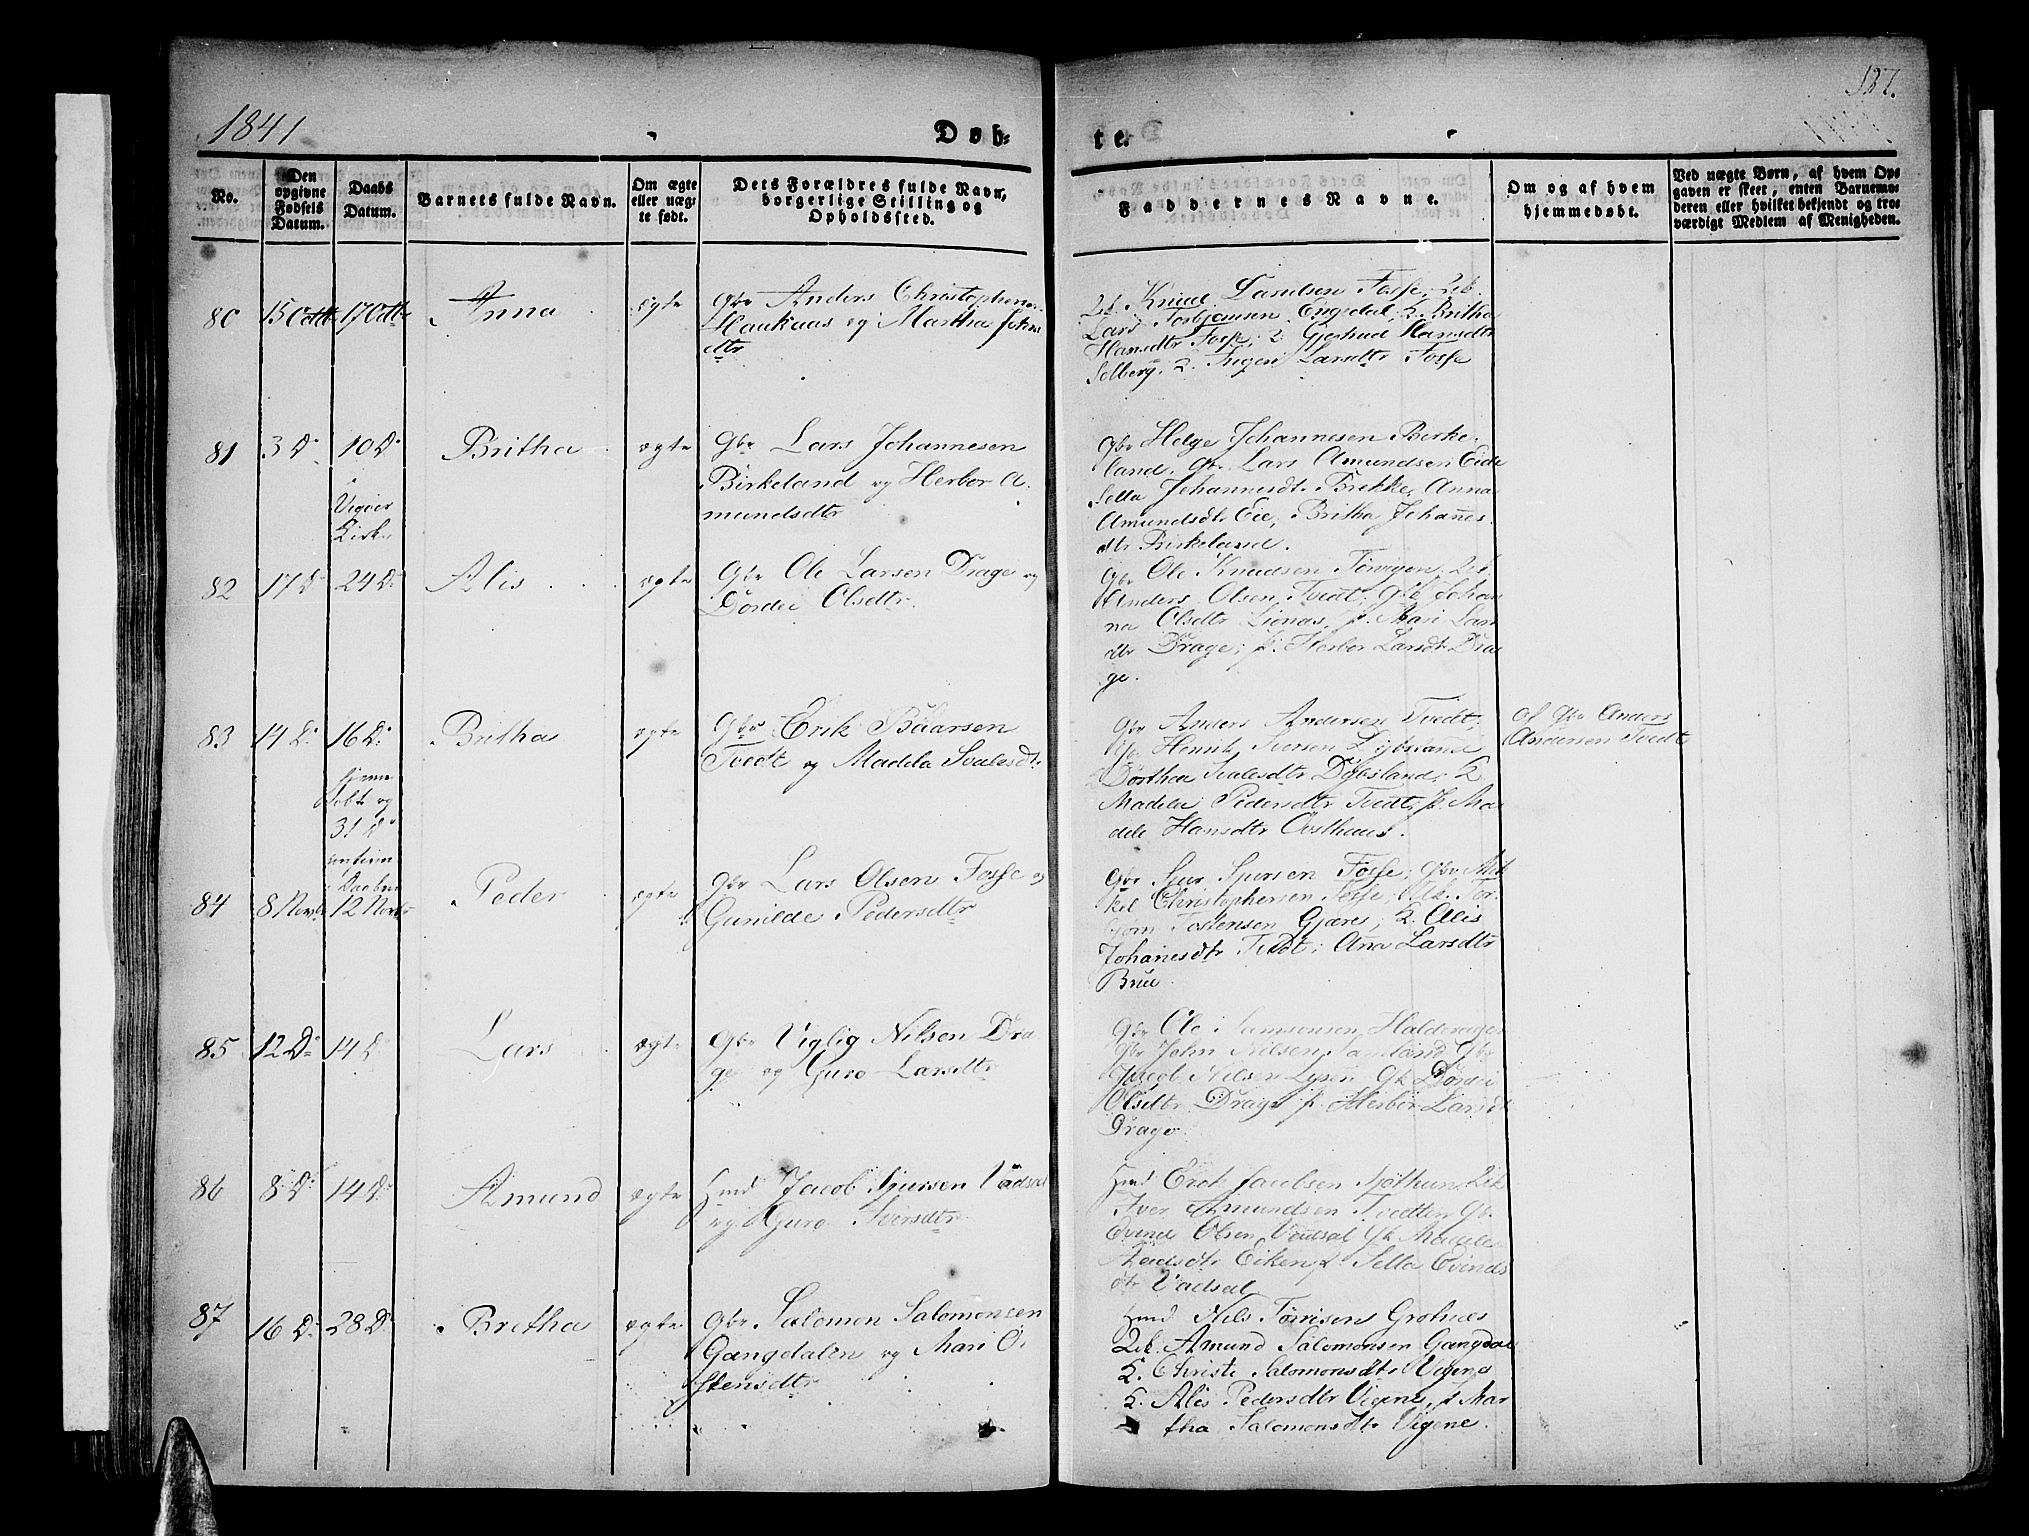 1841
Døb-
te.
127.
No.
Den opgivne Fødsels Datum.
Daabs Datum.
Barnets fulde Navn.
Om ægte eller uægte født.
Dets Forældres fulde Navn, borgerlige Stilling og Opholdssted.
Faddernes Navne.
Om og af hvem hjemmedøbt.
Ved uægte Børn, af hvem Opgaven er skeet, enten Barnemoderen eller hvilket bekjendt og troværdigt Medlem af Menigheden.
80
15 Octbr
17 Octbr
Anna
ægte
Gbr Anders Christophersen
Haukaas og Martha Johns
dtr
Uk. Knud Larsen Fosse, Uk.
Lars Torbjørnsen Engedal, K. Britha
Hansdtr Fosse, Gjertrud Hansdtr
Selberg, Larsdtr Fosse
81
3 D
10 D
i
Vigøer
Kirke
Britha
ægte
Gbr Lars Johannesen
Birkeland og Herbor A-
mundsdtr
Gbr Helge Johannesen Birke-
land, Gbr Lars Amundsen Eide
Sella Johannesdt. Brekke, Anna
Amundsdtr Eie, Britha Johanes-
dtr Birkeland.
82
17 D
24 D
Alis
ægte
Gbr Ole Larsen Drage og
Dordei Olsdtr
Gbr Ole Knudsen Torvigen, Uk.
Anders Olsen Tvedt, Gk Johan-
na Olsdtr Lionas, p. Mari Lars
dtr Drage, p. Herbor Larsdt Dra-
ge.
83
14 D
16 D
hjemme
døbt og
31 D
Britha
ægte
Gbr Erik Baarsen
Tvedt og Madela Ivalesdt.
Gbr Anders Andersen Tvedt,
Gb. Henrik Iversen Dybsland
Dorthea Ivalesdtr Dybsland, K
Madele Pedersdtr Tvedt, p. Ma-
dele Hansdtr Østhuus.
af Gbr Anders
Andersen Tvedt
84
8 Novbr
12 Novbr
Peder
ægte
Gbr Lars Olsen Fosse og
Gunilde Pedersdtr
Gbr Siur Siursen Fosse, Gbr Mik-
kel Christophersen Fosse, Uk. Tor-
bjørn Tostensen Gjære, K. Alis
Johanesdtr Tvedt, Ana Larsdtr
Brue
85
12 D
14 D
Lars
ægte
Gbr Viglig Nilsen Dra-
ge og Guro Larsdtr
Gbr Ole Samsonsen Halderager
Gbr John Nilsen Samland Gbr
Jacob Nilsen Lysen Gk Dordei
Olsdtr Drage p. Herbor Larsdt
Drage
86
8 D
14 D
Amund
ægte
Hmd Jacob Siursen Vadsel
og Guro Iversdtr
Hmd Erik Jacobsen Uk
Iver Amundsen Tvedten Gb.
Evind Olsen Vadsal Gk Madele
Eiken p. Sella Evinds
dtr Vadsal
87
16 D
28 D
Bretha
ægte
Gbr Salomon Salomonsen
Gangdalen og Mari Ø-
stensdtr
Hmd Nils Torrisen Grotnes
Uk. Amund Salomonsen Gangdal
K. Christi Salomonsdtr Vigene
K. Alis Pedersdtr Vigene, p Mar
tha Salomonsdtr Vigene.